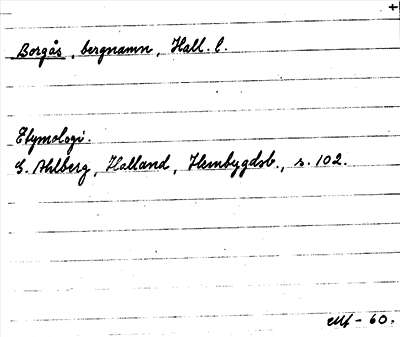 +
Borgås, bergnamn, Hall. l.
Etymologi.
G. Ahlberg, Halland, Hembygdsb., s. 102.
- 60.